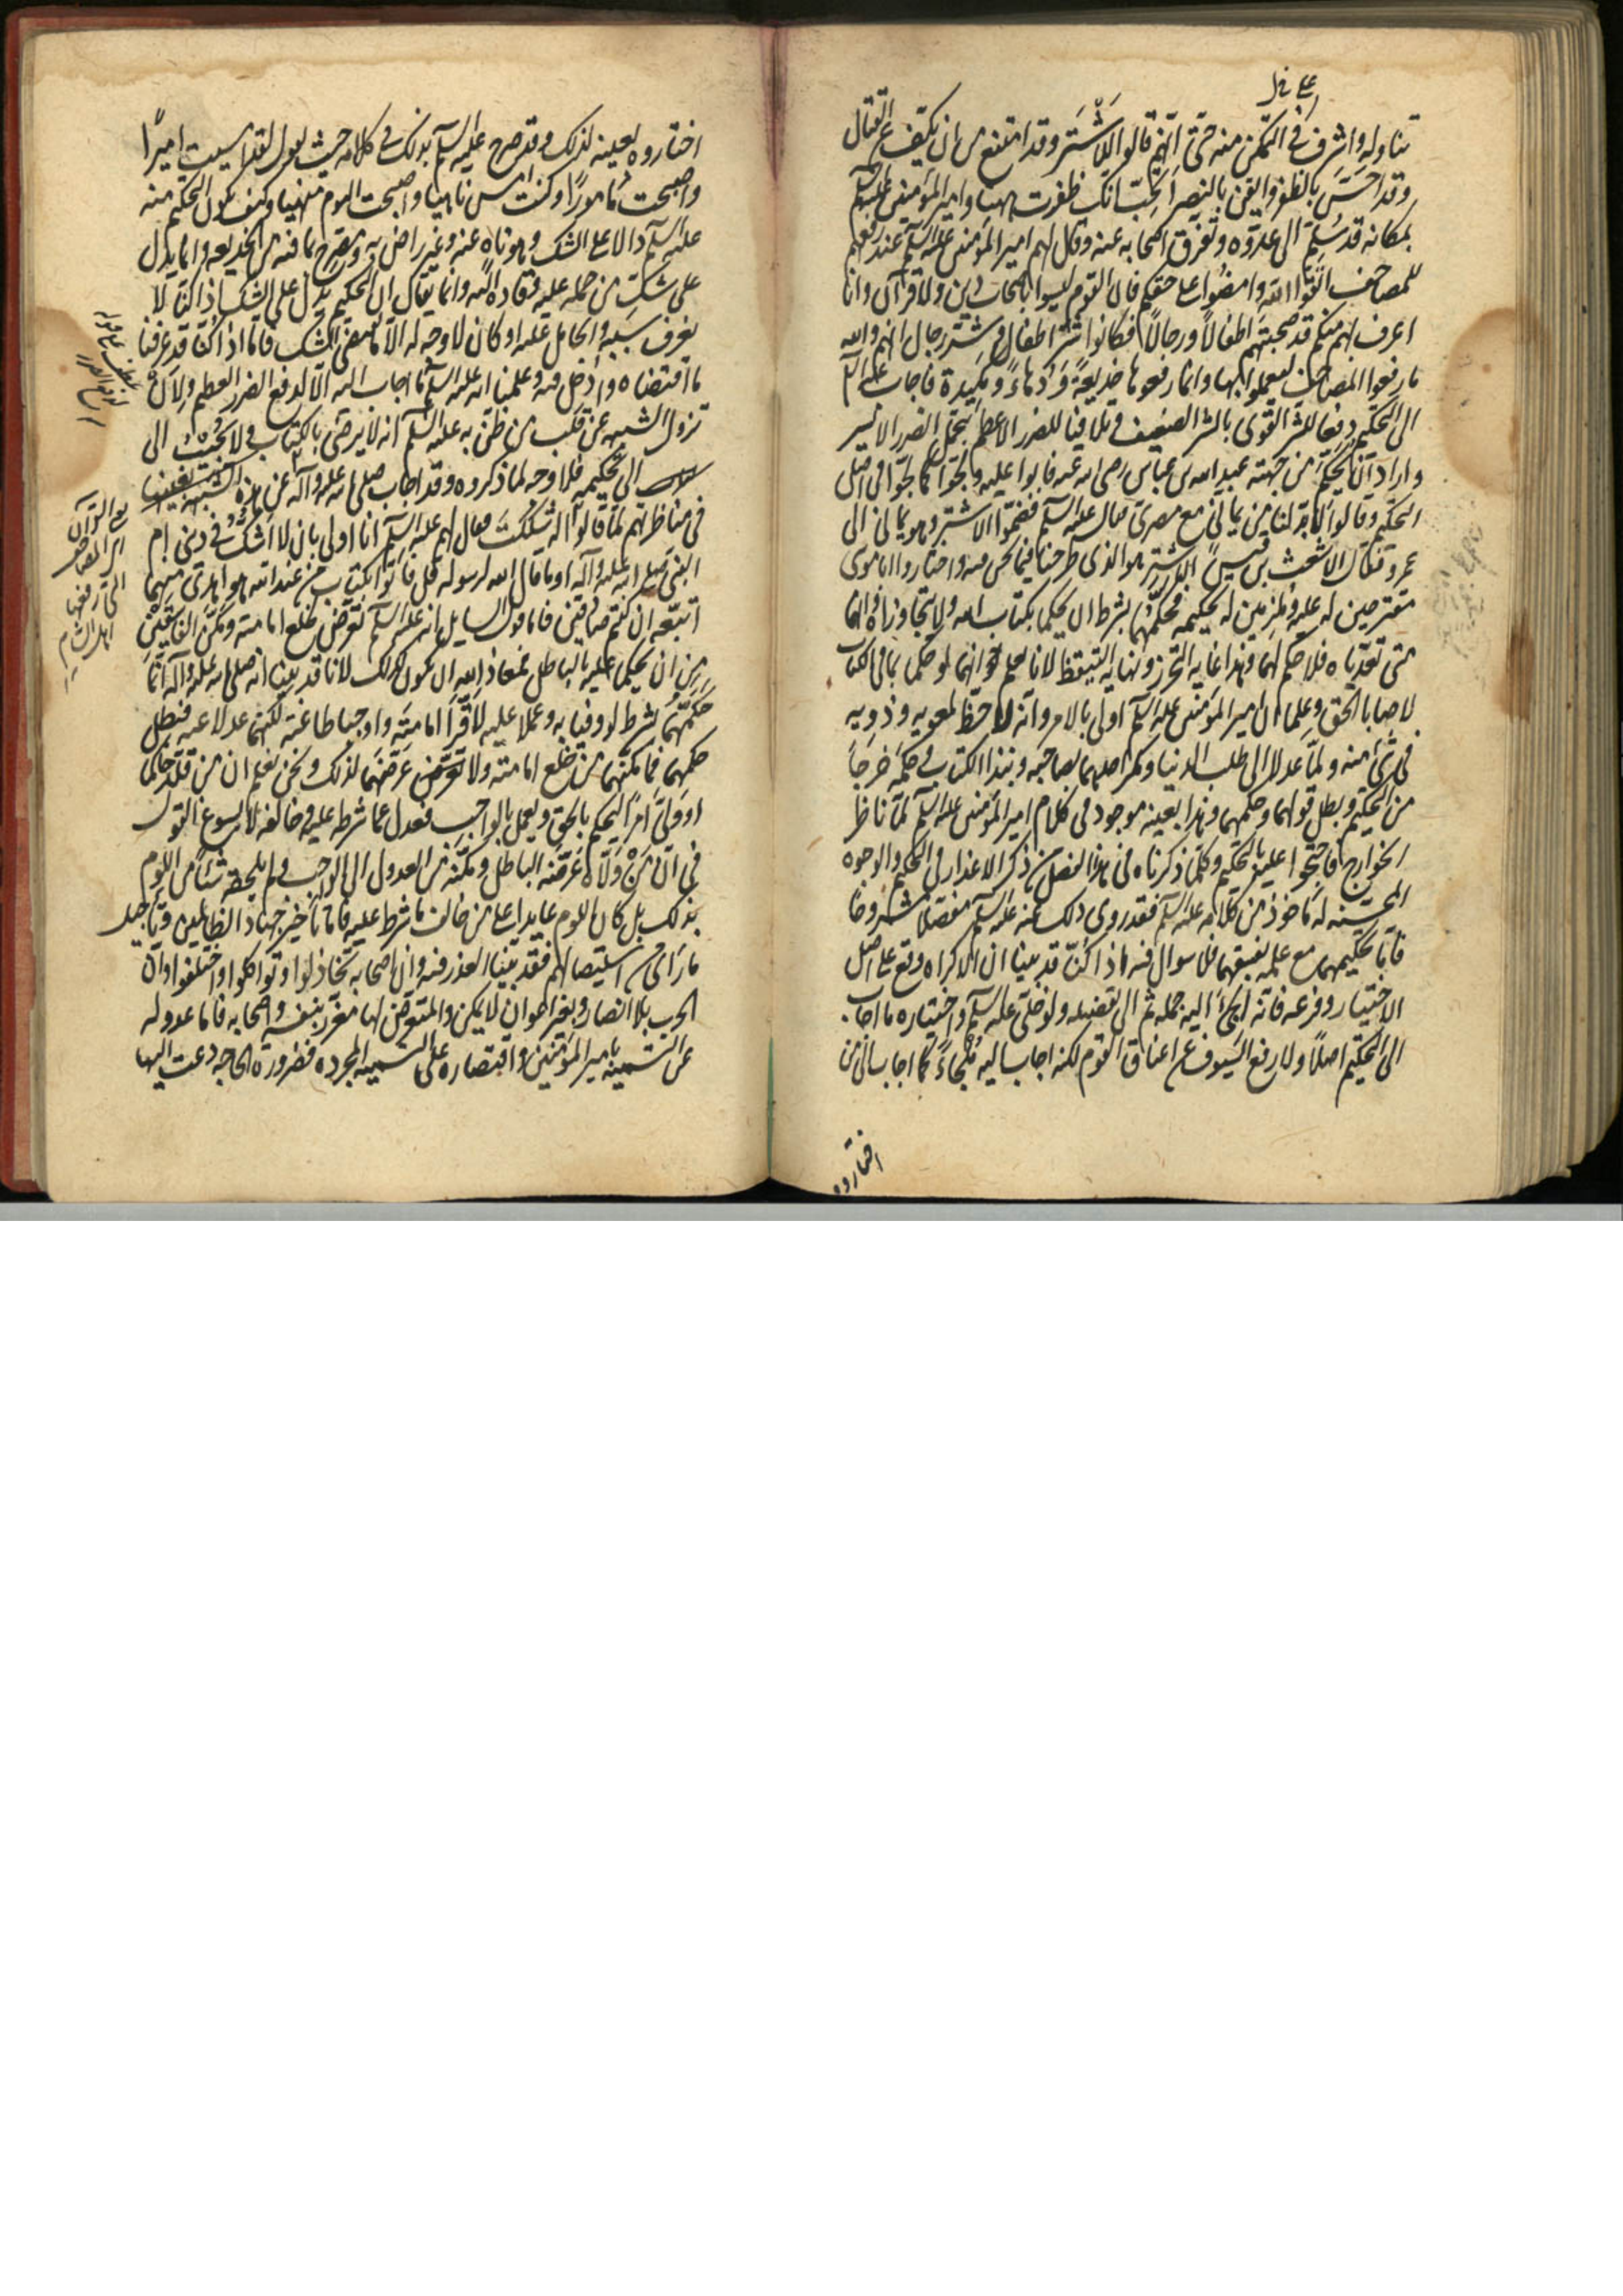 تناوله واشرف في التمكن منه حتى انهم قالوا للاشتر وقد امتنع من ان يكف عن القتال
وقد احس بالظفر وايقن بالنصر اتحب انك ظفرت ههنا وامير المؤمنين عليه السلم
بمكانه قد سلم الى عدوه وتفرق اصحابه عنه وقال لهم امير المؤمنين عليه السلم عند رفعهم
للمصاحف اتقوا الله وامضوا على حقكم فان القوم ليسوا باصحاب دين ولا قرآن وانا
اعرف بهم منكم قد صحبتهم اطفالا ورجالا فكانوا شر اطفال وشر رجال انهم والله
ما رفعوا المصاحف ليعملوا بها وانما رفعوها خديعة ودهاء ومكيدة فاجاب عليه السلم
الى التحكيم دفعا للشر القوي بالشر الضعيف وتلافيا للضرر الاعظم بتحمل الضرر الايسر
واراد ان يحكم من جهته عبد الله بن عباس رضي الله عنه فابوا عليه ولجوا كما لجوا في اصل
التحكيم وقالوا لا بد لنا من يماني مع مضري فقال عليه السلم فضموا الاشتر وهو يماني الى
عمرو فقال الاشعث بن قيس الاشتر هو الذي طرحنا فيما نحن فيه واختاروا ابا موسى
مقترحين له عليه وملزمين له تحكيمه فحكمهما بشرط ان يحكما بكتاب الله ولا يتجاوزاه وانهما
متى تعدياه فلا حكم لهما وهذا غاية التحرز ونهاية التيقظ لانا نعلم انهما لو حكما بما في الكتاب
لاصابا الحق وعلما ان امير المؤمنين عليه السلم اولى بالامر وانه لا حظ لمعوية وذويه
في شئ منه ولما عدلا الى طلب الدنيا ومكر احدهما بصاحبه ونبذا الكتاب وحكمه خرجا
من التحكيم وبطل قولهما وحكمهما وهذا بعينه موجود في كلام امير المؤمنين عليه السلم لما ناظر
الخوارج فاحتجوا عليه بالتحكيم وكلما ذكرناه في هذا الفصل من ذكر الاعذار في التحكيم والوجوه
المحسنة له مأخوذ من كلامه عليه السلم فقد روي ذلك عنه عليه السلم مفصلا مشروحا
فاما تحكيمهما مع علمه بفسقهما فلا سوال فيه اذا كنا قد بينا ان الاكراه وقع على اصل
الاختيار وفرعه فانه الجئ اليه جملة ثم الى تفصيله ولو خلي عليه السلم واختياره ما اجاب
الى التحكيم اصلا ولا رفع السيوف عن اعناق القوم لكنه اجاب اليه ملجاء كما اجاب الى من
اختاروه
اختاروه بعينه لذلك وقد صرح عليه السلم بذلك في كلامه حيث يقول لقد امسيت اميرا
واصبحت مامورا وكنت امس ناهيا واصبحت اليوم منهيا وكيف يكون التحكيم منه
عليه السلم دالا على الشك وهو ناه عنه وغير راض به ومصرح بما فيه من الخديعة وانما يدل
على شك من حمله عليه وقاده اليه وانما يقال ان التحكيم يدل على الشك اذا كنا لا
نعرف سببه والحامل عليه او كان لا وجه له الا ما يقتضي الشك فاما اذا كنا قد عرفنا
ما اقتضاه وادخل فيه وعلمنا انه عليه السلم ما اجاب اليه الا لدفع الضرر العظيم ولان
تزول الشبهة عن قلب من ظن به عليه السلم انه لا يرضى بالكتاب ولا يجيب الى
الى تحكيمه فلا وجه لما ذكروه وقد اجاب صلى الله عليه وآله عن هذه الشبهة بعينها
في مناظرتهم لما قالوا له شككت فقال لهم عليه السلم انا اولى بان لا اشك في ديني ام
النبي صلى الله عليه وآله اوما قال الله لرسوله قل فأتوا بكتاب من عند الله هو اهدى منهما
اتبعه ان كنتم صادقين فاما قول السايل انه عليه السلم تعرض لخلع امامته ومكن الفاسقين
من ان يحكما عليه بالباطل فمعاذ الله ان يكون كذلك لانا قد بينا انه صلى الله عليه وآله انما
حكمهما بشرط لو وفيا به وعملا عليه لاقرا امامته واوجبا طاعته لكنهما عدلا عنه فبطل
حكمهما فما مكنهما من خلع امامته ولا تعرض عرضهما لذلك ونحن نعلم ان من قلد حاكما
او ولى امرا ليحكم بالحق ويعمل بالواجب فعدل عما شرطه عليه وخالفه لا يسوغ القول
في ان من ولاه عرضه الباطل ومكنه من العدول الى الواجب ولم يلحقه شئ من اللوم
بذلك بل كان اللوم عايدا على من خالف ما شرط عليه فاما تأخير جهاد الظالمين وتاجيل
ما راى من استيصالهم فقد بينا العذر فيه وان اصحابه تخاذلوا وتواكلوا واختلفوا وان
الحرب بلا انصار وبغير اعوان لا يمكن والمتعرض لها مغرر بنفسه واصحابه فاما عدوله
عن التسمية بامير المؤمنين واقتصاره على التسمية المجردة فضرورة الحاجة دعت اليها